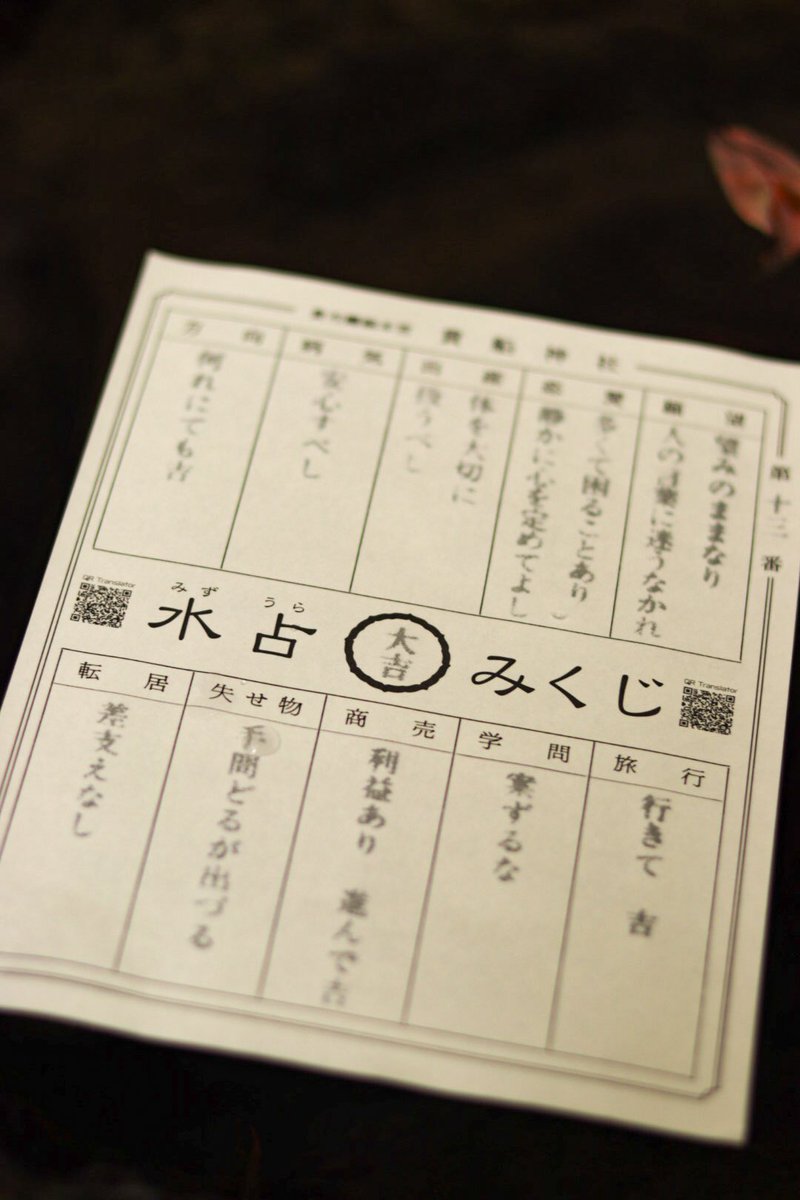 貴船神社
第十三番
願望
望みのままなり
人の言葉に迷うなかれ
恋愛
多くて困ることあり
静かに心を定めてよし
出産
体を大切に
扱うべし
病気
安心すべし
方向
何れにても吉
QR Translator
みず うら
水占 大吉 みくじ
QR Translator
旅行
行きて 吉
学問
案ずるな
商売
利益あり 進んで吉
失せ物
手間どるが出づる
転居
差支えなし